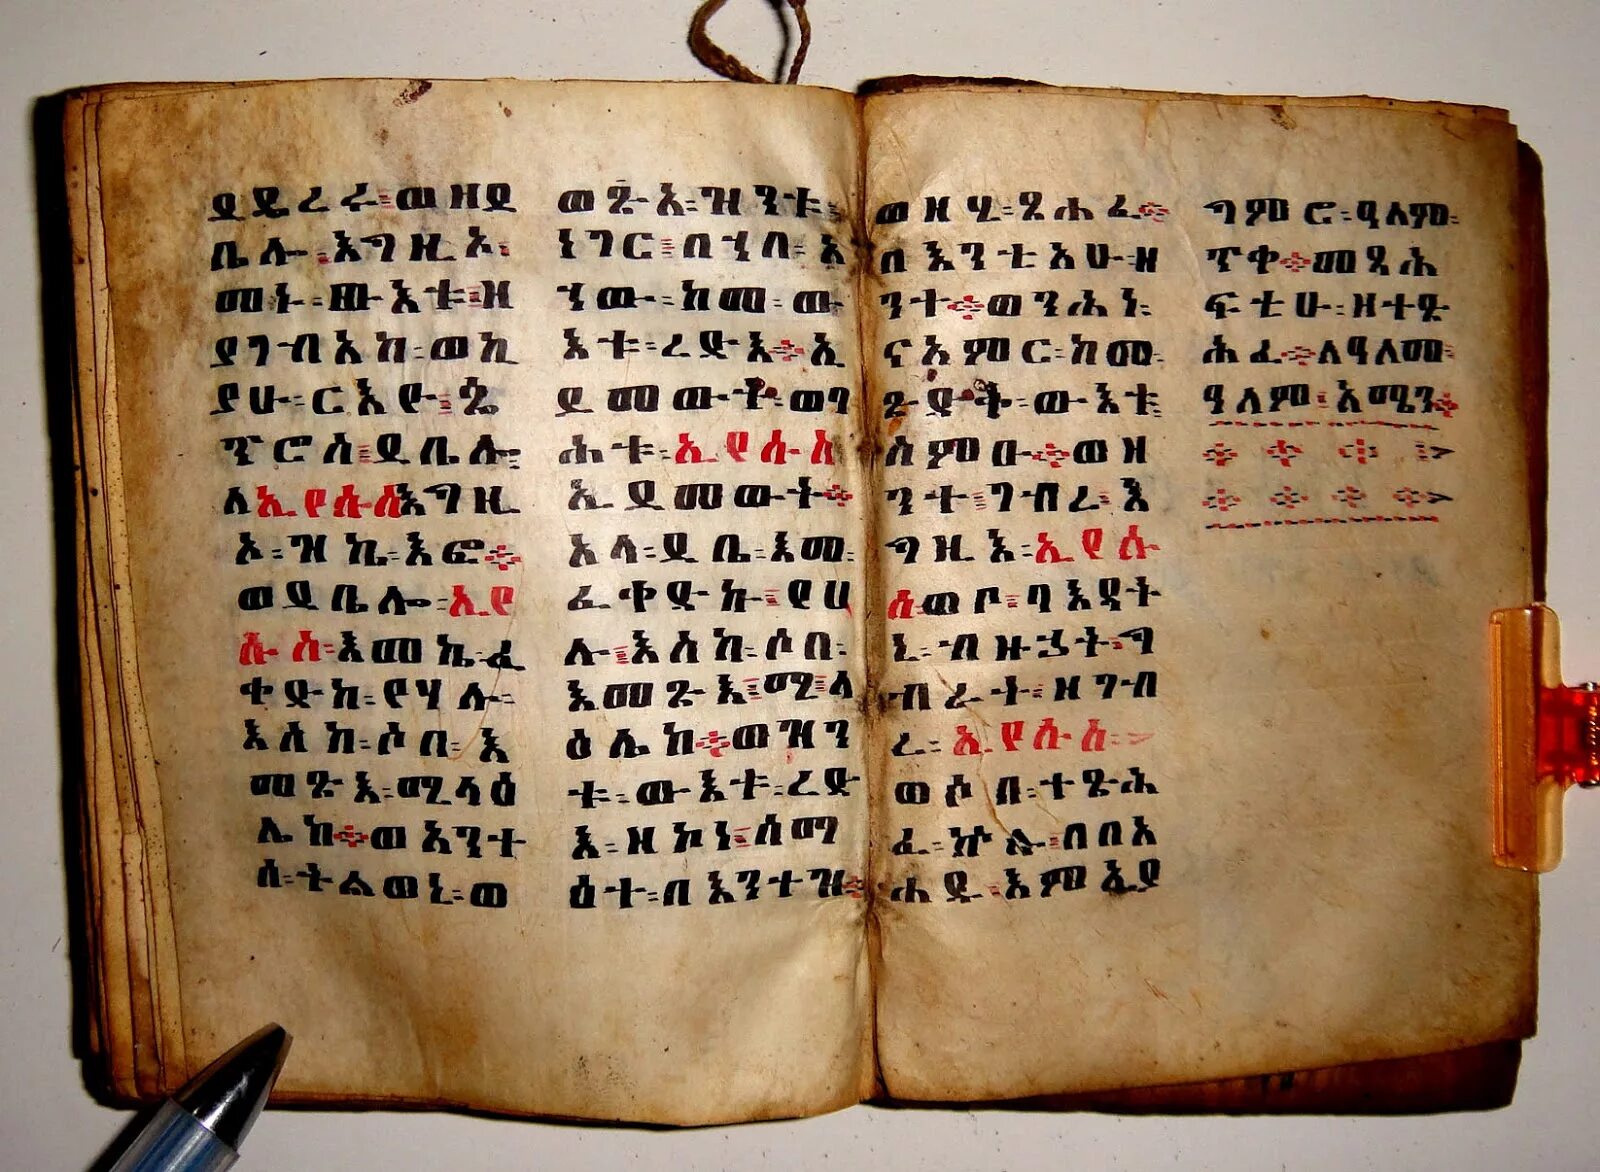 ይዴረሩ፡ወዘይ
ቤሎ፡እግዚኦ፡
መኑ፡ውእቱ፡ዘ
ያገብአከ፡ወኪ
ያሁ፡ርእዮ፡ጴ
ጥሮስ፡ይቤሎ፡
ለኢየሱስእግዚ
ኦ፡ዝኬ፡እፎ።
ወይቤሎ፡ኢየ
ሱስ፡እመኬ፡ፈ
ቀድኩ፡የሃሉ፡
እስከ፡ሶበ፡እ
መጽእ፡ሚላዕ
ሌከ።ወአንተ
ሰ፡ትልወኒ፡ወ
ወጽአ፡ዝንቱ፡
ነገር፡በኀበ፡አ
ኀው፡ከመ፡ው
እቱ፡ረድእ።ኢ
ይመውት፡ወባ
ሕቱ፡ኢየሱስ
ኢይመውት።
አላ፡ይቤ፡እመ፡
ፈቀድኩ፡የሀ
ሉ፡እስከ፡ሶበ፡
እመጽእ፡ሚ፡ላ
ዕሌከ።ወዝን
ቱ፡ውእቱ፡ረድ
እ፡ዘኮነ፡ሰማ
ዕተ፡በእንተዝ።
ወዘሂ፡ጸሐፈ።
በእንቲአሁ፡ዘ
ንተ።ወንሕነ፡
ናአምር፡ከመ፡
ጽድቅ፡ውእቱ፡
ስምዑ።ወዘ
ንተ፡ገብረ፡እ
ግዚእ፡ኢየሱ
ስወቦ፡ባእዳት
ኒ፡ብዙኃት፡ግ
ብራት፡ዘገብ
ረ፡ኢየሱስ፡
ወሶበ፡ተጽሕ
ፈ፡ኵሉ፡በበአ
ሐዱ፡እምኢያ
ግምሮ፡ዓለም፡
ጥቀ።መጻሕ
ፍቲሁ፡ዘተጽ
ሕፈ።ለዓለመ፡
ዓለም፡አሜን።